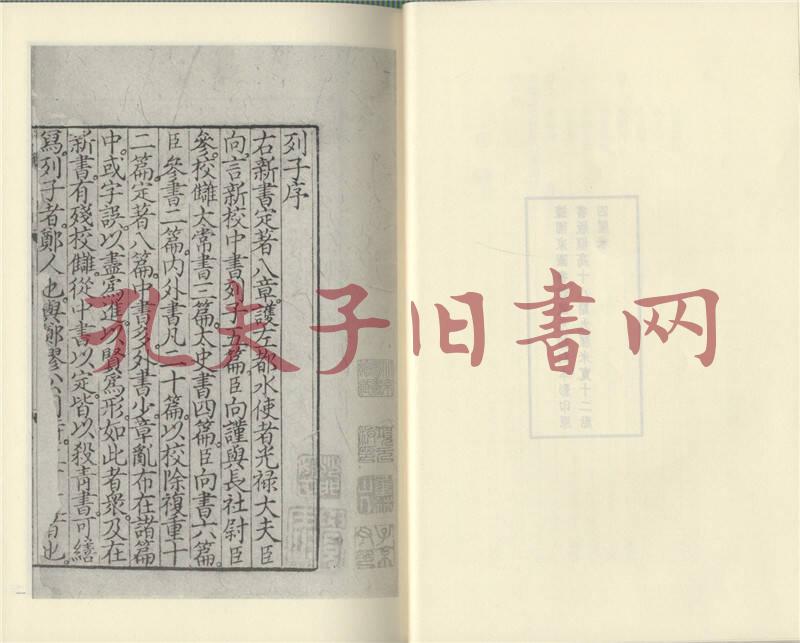 列子序
右新書定著八章護左都水使者光禄大夫臣
向言新校中書列子五篇臣向謹與長社尉臣
參校讎太常書三篇太史書四篇臣向書六篇
臣參書二篇内外書凡二十篇以校除複重十
二篇定著八篇中書多外書少章亂布在諸篇
中或字誤以盡為進以賢為形如此者衆及在
新書有殘校讎從中書以定皆以殺青書可繕
寫列子者鄭人也與鄭繆公同時
者也
孔夫子旧书网